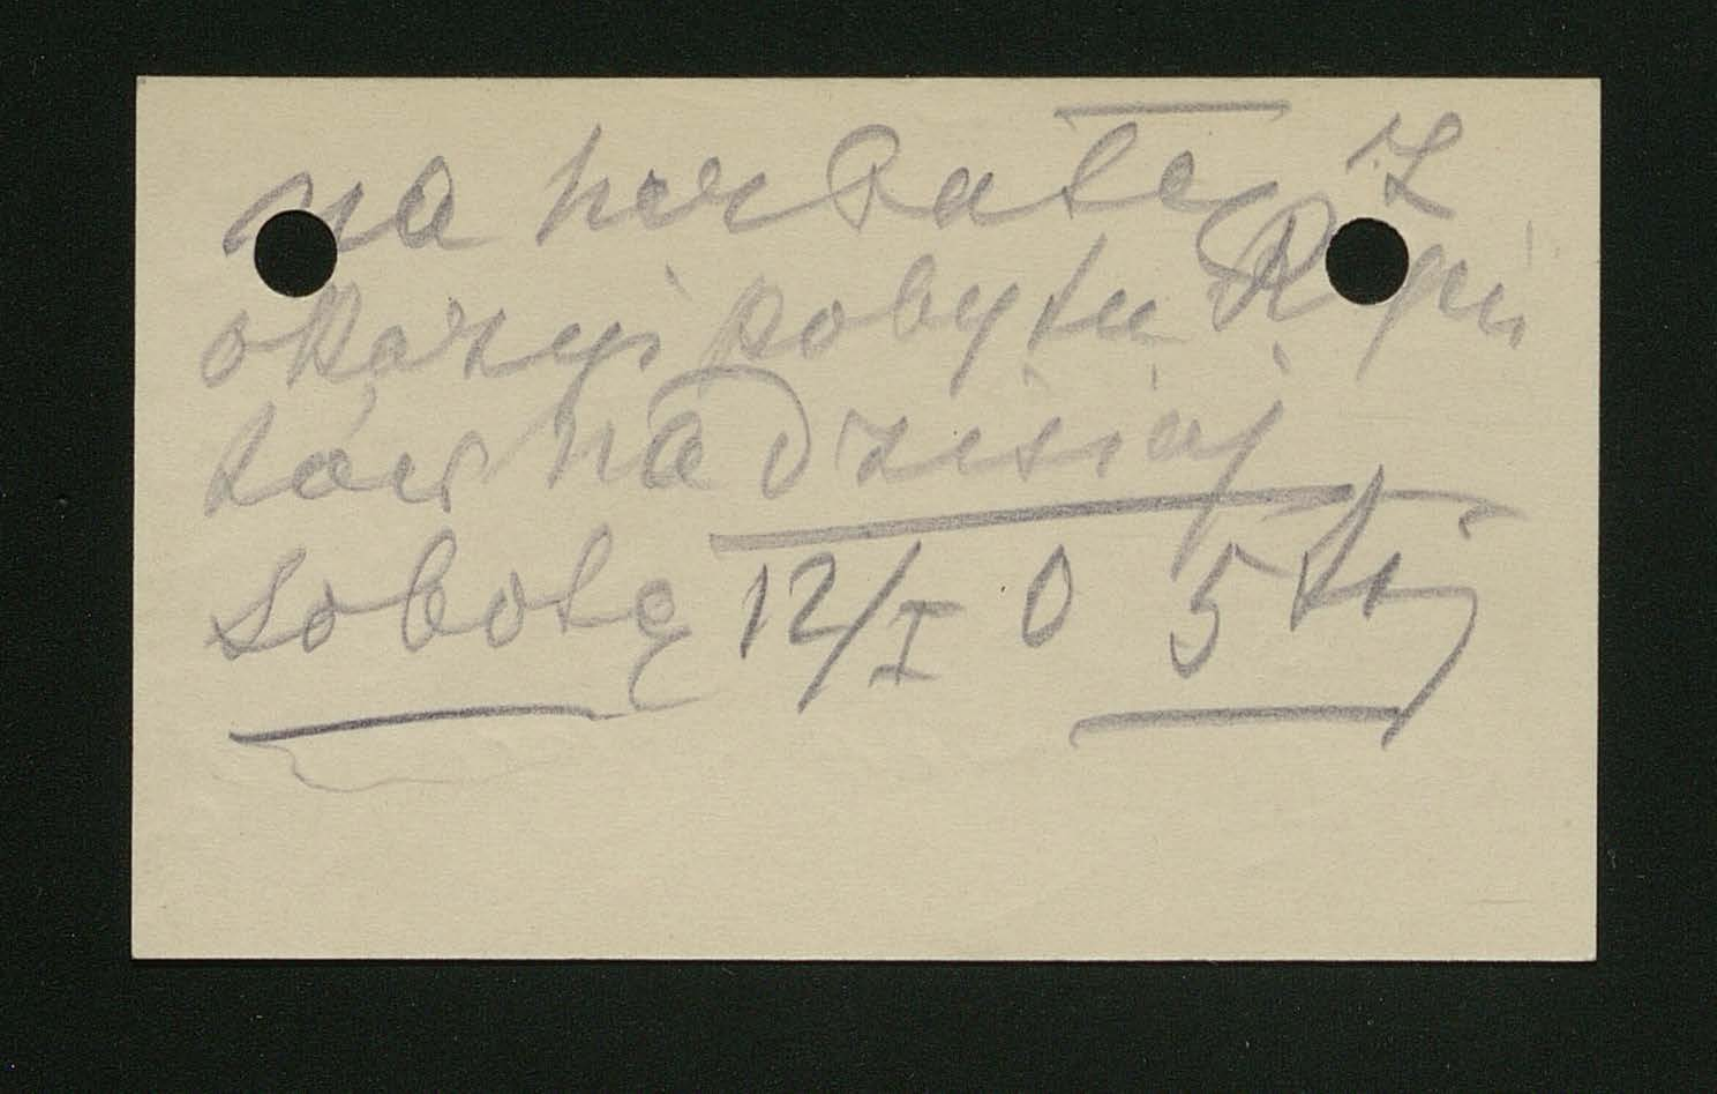 na herbatę z
okazyi pobytu
tów na dzisiaj
sobotę 12/I o 5tej